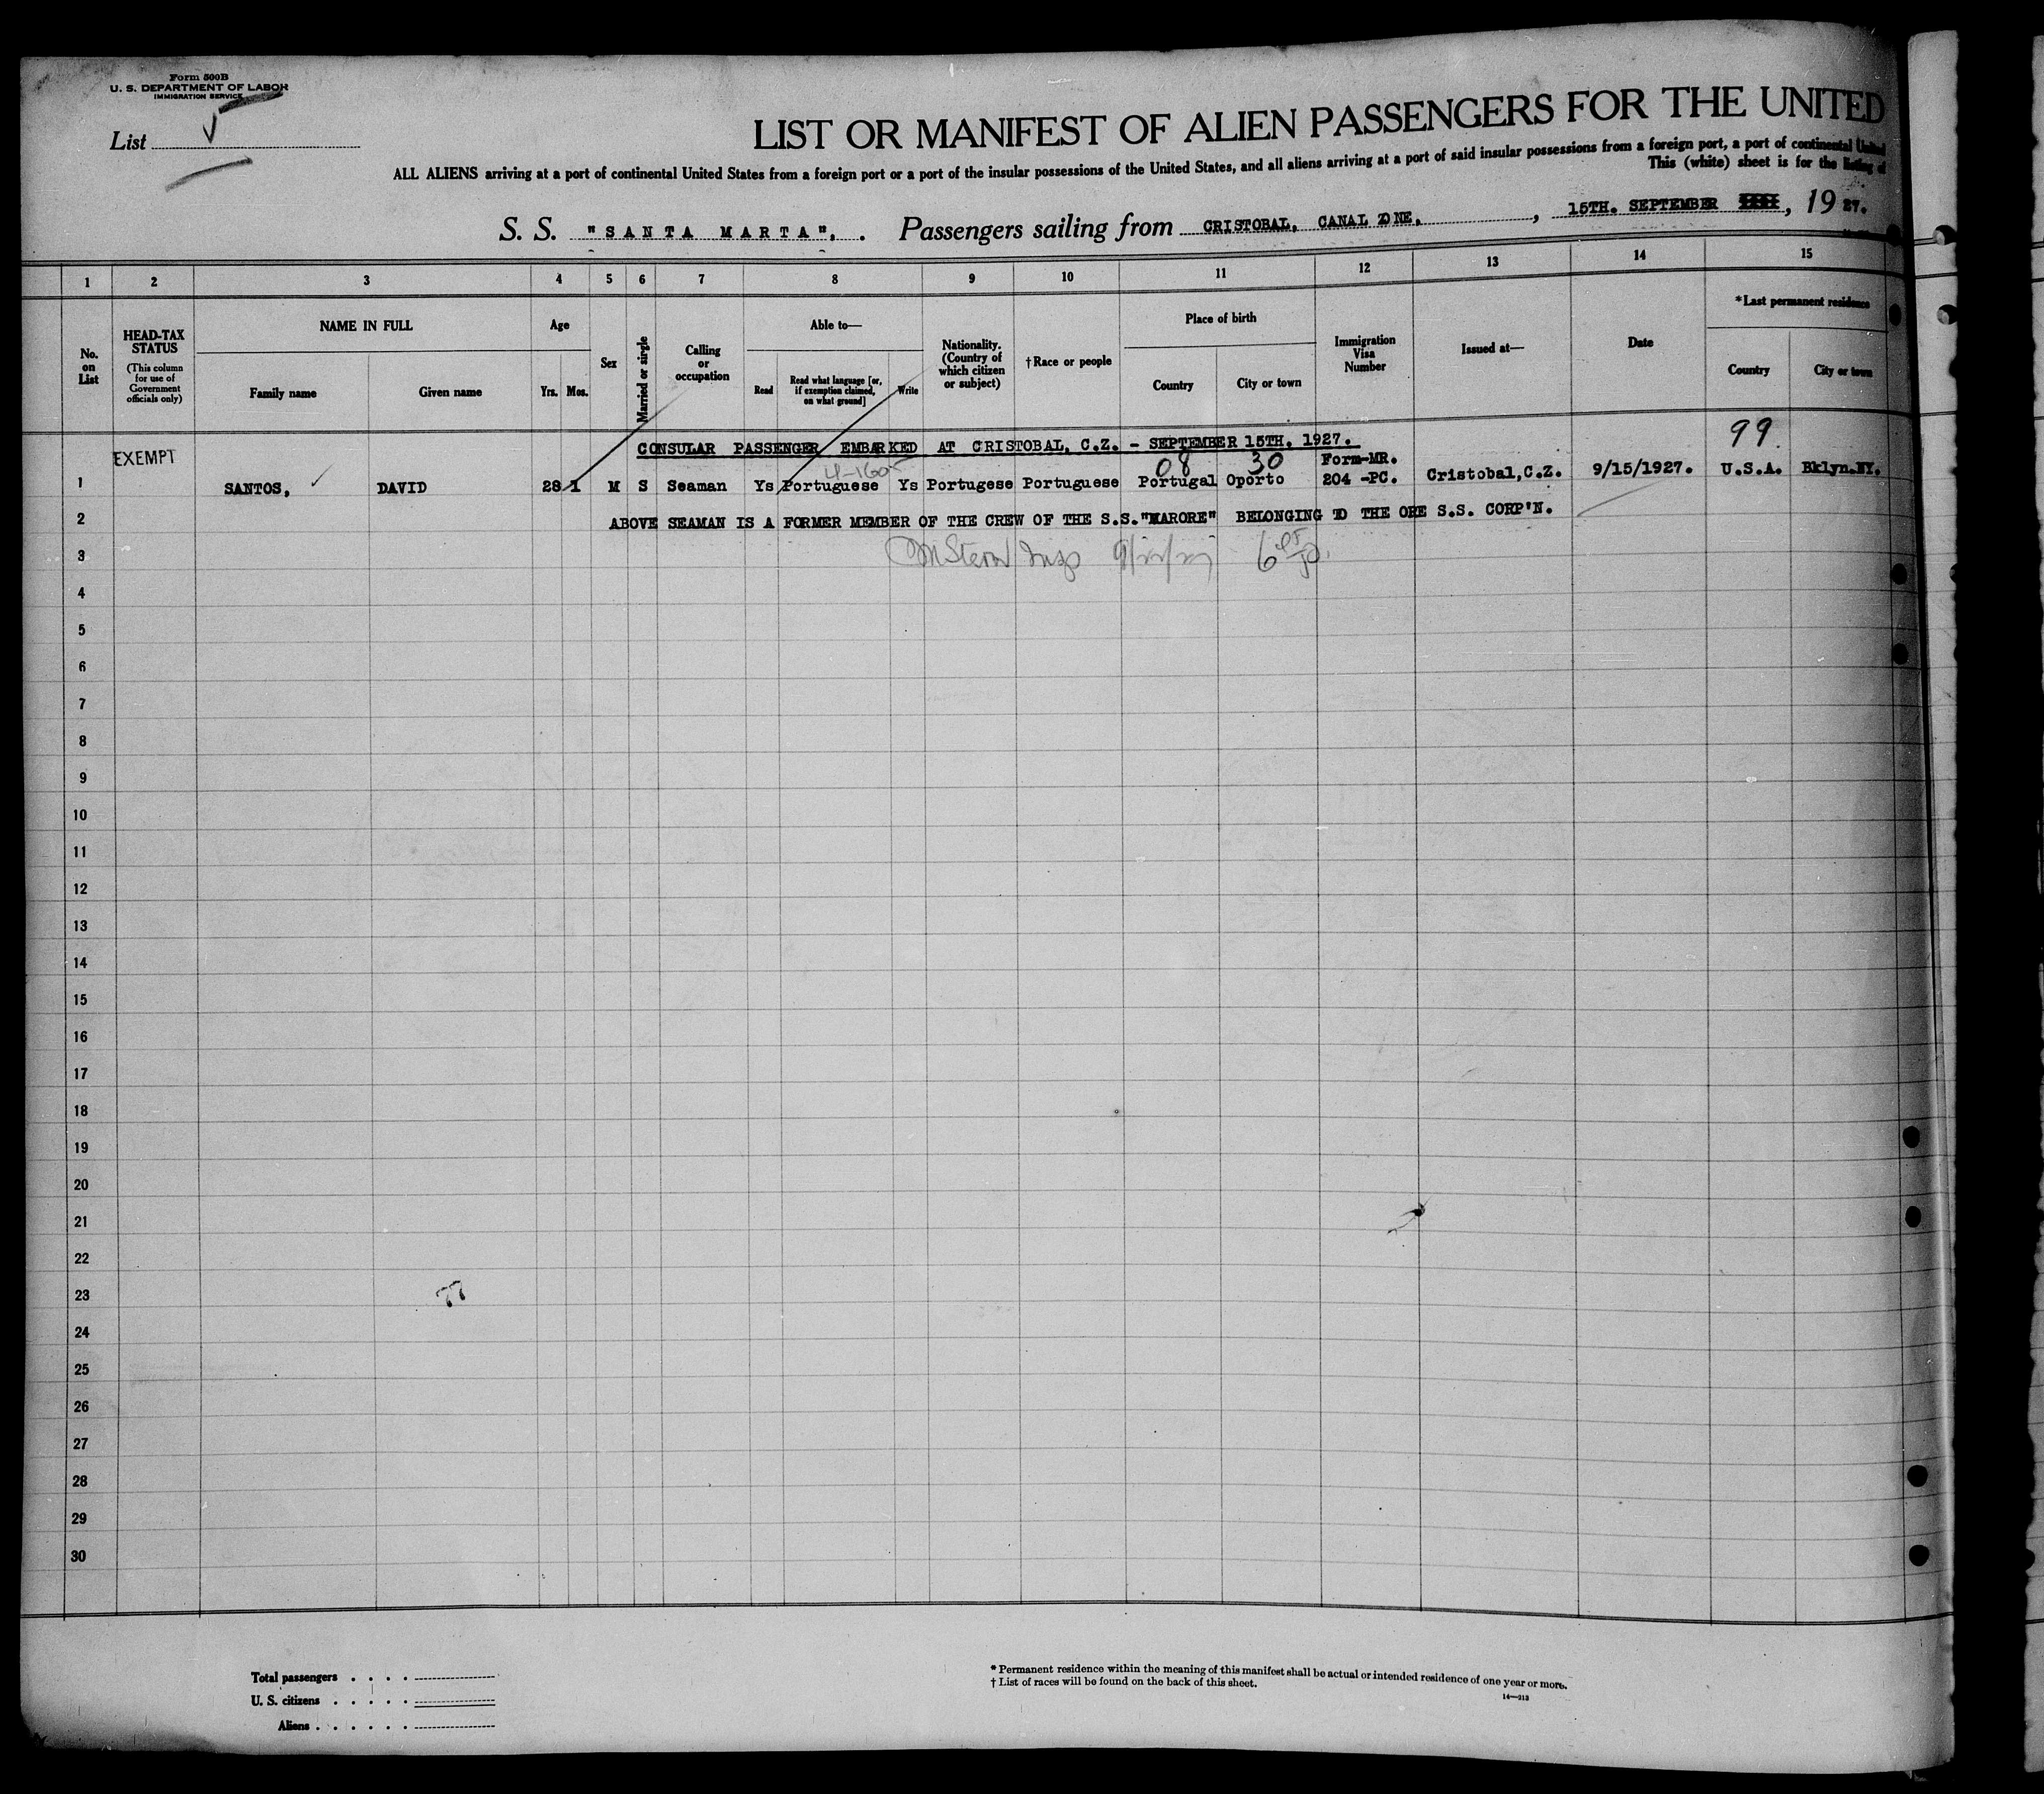 Form 500B
U. S. DEPARTMENT OF LABOR
IMMIGRATION SERVICE
List
LIST OR MANIFEST OF ALIEN PASSENGERS FOR THE UNITED
ALL ALIENS arriving at a port of continental United States from a foreign port or a port of the insular possessions of the United States, and all aliens arriving at a port of said insular possessions from a foreign port, a port of continental United
This (white) sheet is for the listing of
S. S. "SANTA MARTA", . Passengers sailing from CRISTOBAL, CANAL ZONE. , 15TH. SEPTEMBER , 19 27.
1 2 3 4 5 6 7 8 9 10 11 12 13 14 15
No. on List
HEAD-TAX STATUS
(This column for use of Government officials only)
NAME IN FULL
Family name Given name
Age
Yrs. Mos.
Sex
Married or single
Calling or occupation
Able to—
Read
Read what language [or, if exemption claimed, on what ground]
Write
Nationality. (Country of which citizen or subject)
†Race or people
Place of birth
Country City or town
Immigration Visa Number
Issued at—
Date
*Last permanent residence
Country City or town
CONSULAR PASSENGER EMBARKED AT CRISTOBAL, C.Z. - SEPTEMBER 15TH. 1927.
99
EXEMPT 08 30 Form-MR.
1 SANTOS, DAVID 28 1 M S Seaman Ys Portuguese Ys Portugese Portuguese Portugal Oporto 204 -PC. Cristobal,C.Z. 9/15/1927. U.S.A. Bklyn.NY.
2 ABOVE SEAMAN IS A FORMER MEMBER OF THE CREW OF THE S.S."MARORE" BELONGING TO THE ORE S.S. CORP'N.
3
4
5
6
7
8
9
10
11
12
13
14
15
16
17
18
19
20
21
22
23
24
25
26
27
28
29
30
77
Total passengers . . . .
U. S. citizens . . . . .
Aliens . . . . . .
* Permanent residence within the meaning of this manifest shall be actual or intended residence of one year or more.
† List of races will be found on the back of this sheet.
14—213